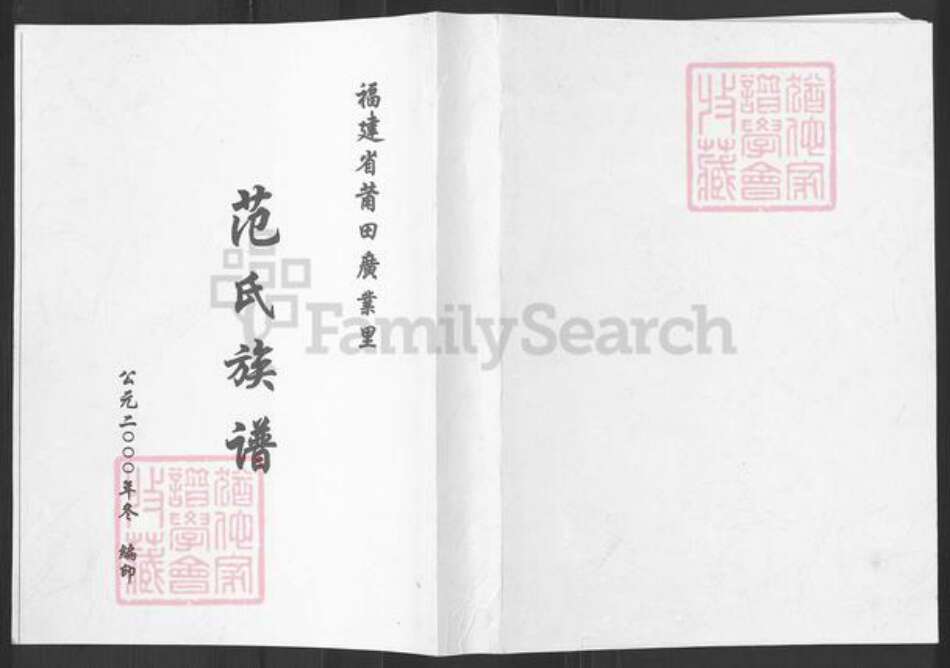 福建省莆田廣業里
范氏族譜
公元二〇〇〇年冬 編印
猶他家
譜學會
收藏
猶他家
譜學會
收藏
FamilySearch